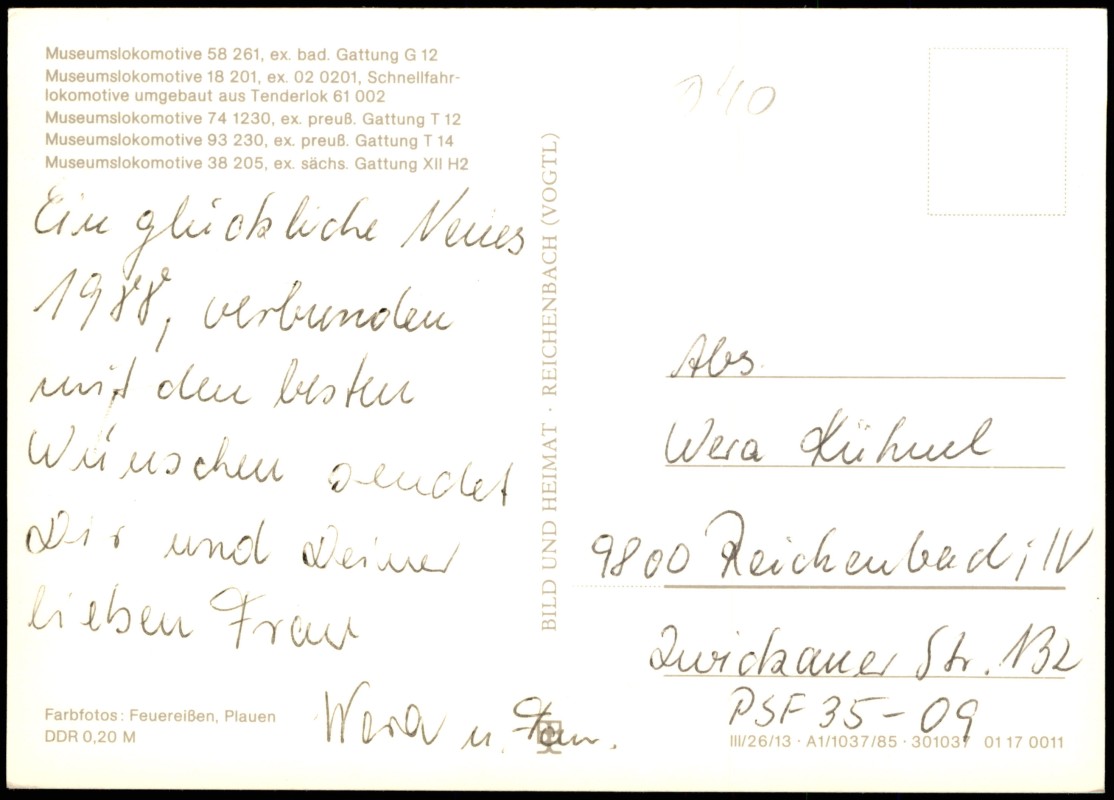 Museumslokomotive 58 261, ex. bad. Gattung G 12
Museumslokomotive 18 201, ex. 02 0201, Schnellfahr-
lokomotive umgebaut aus Tenderlok 61 002
Museumslokomotive 74 1230, ex. preuß. Gattung T 12
Museumslokomotive 93 230, ex. preuß. Gattung T 14
Museumslokomotive 38 205, ex. sächs. Gattung XII H2
Ein glückliche Neues
1988, verbunden
mit den besten
Wünschen sendet
Dir und Deiner
lieben Frau
Wera u. Fam.
Farbfotos: Feuereißen, Plauen
DDR 0,20 M
BILD UND HEIMAT · REICHENBACH (VOGTL)
140
Abs.
Wera Kühnel
9800 Reichenbach i/V
Zwickauer Str. 132
PSF 35-09
III/26/13 · A1/1037/85 · 301037 01 17 0011